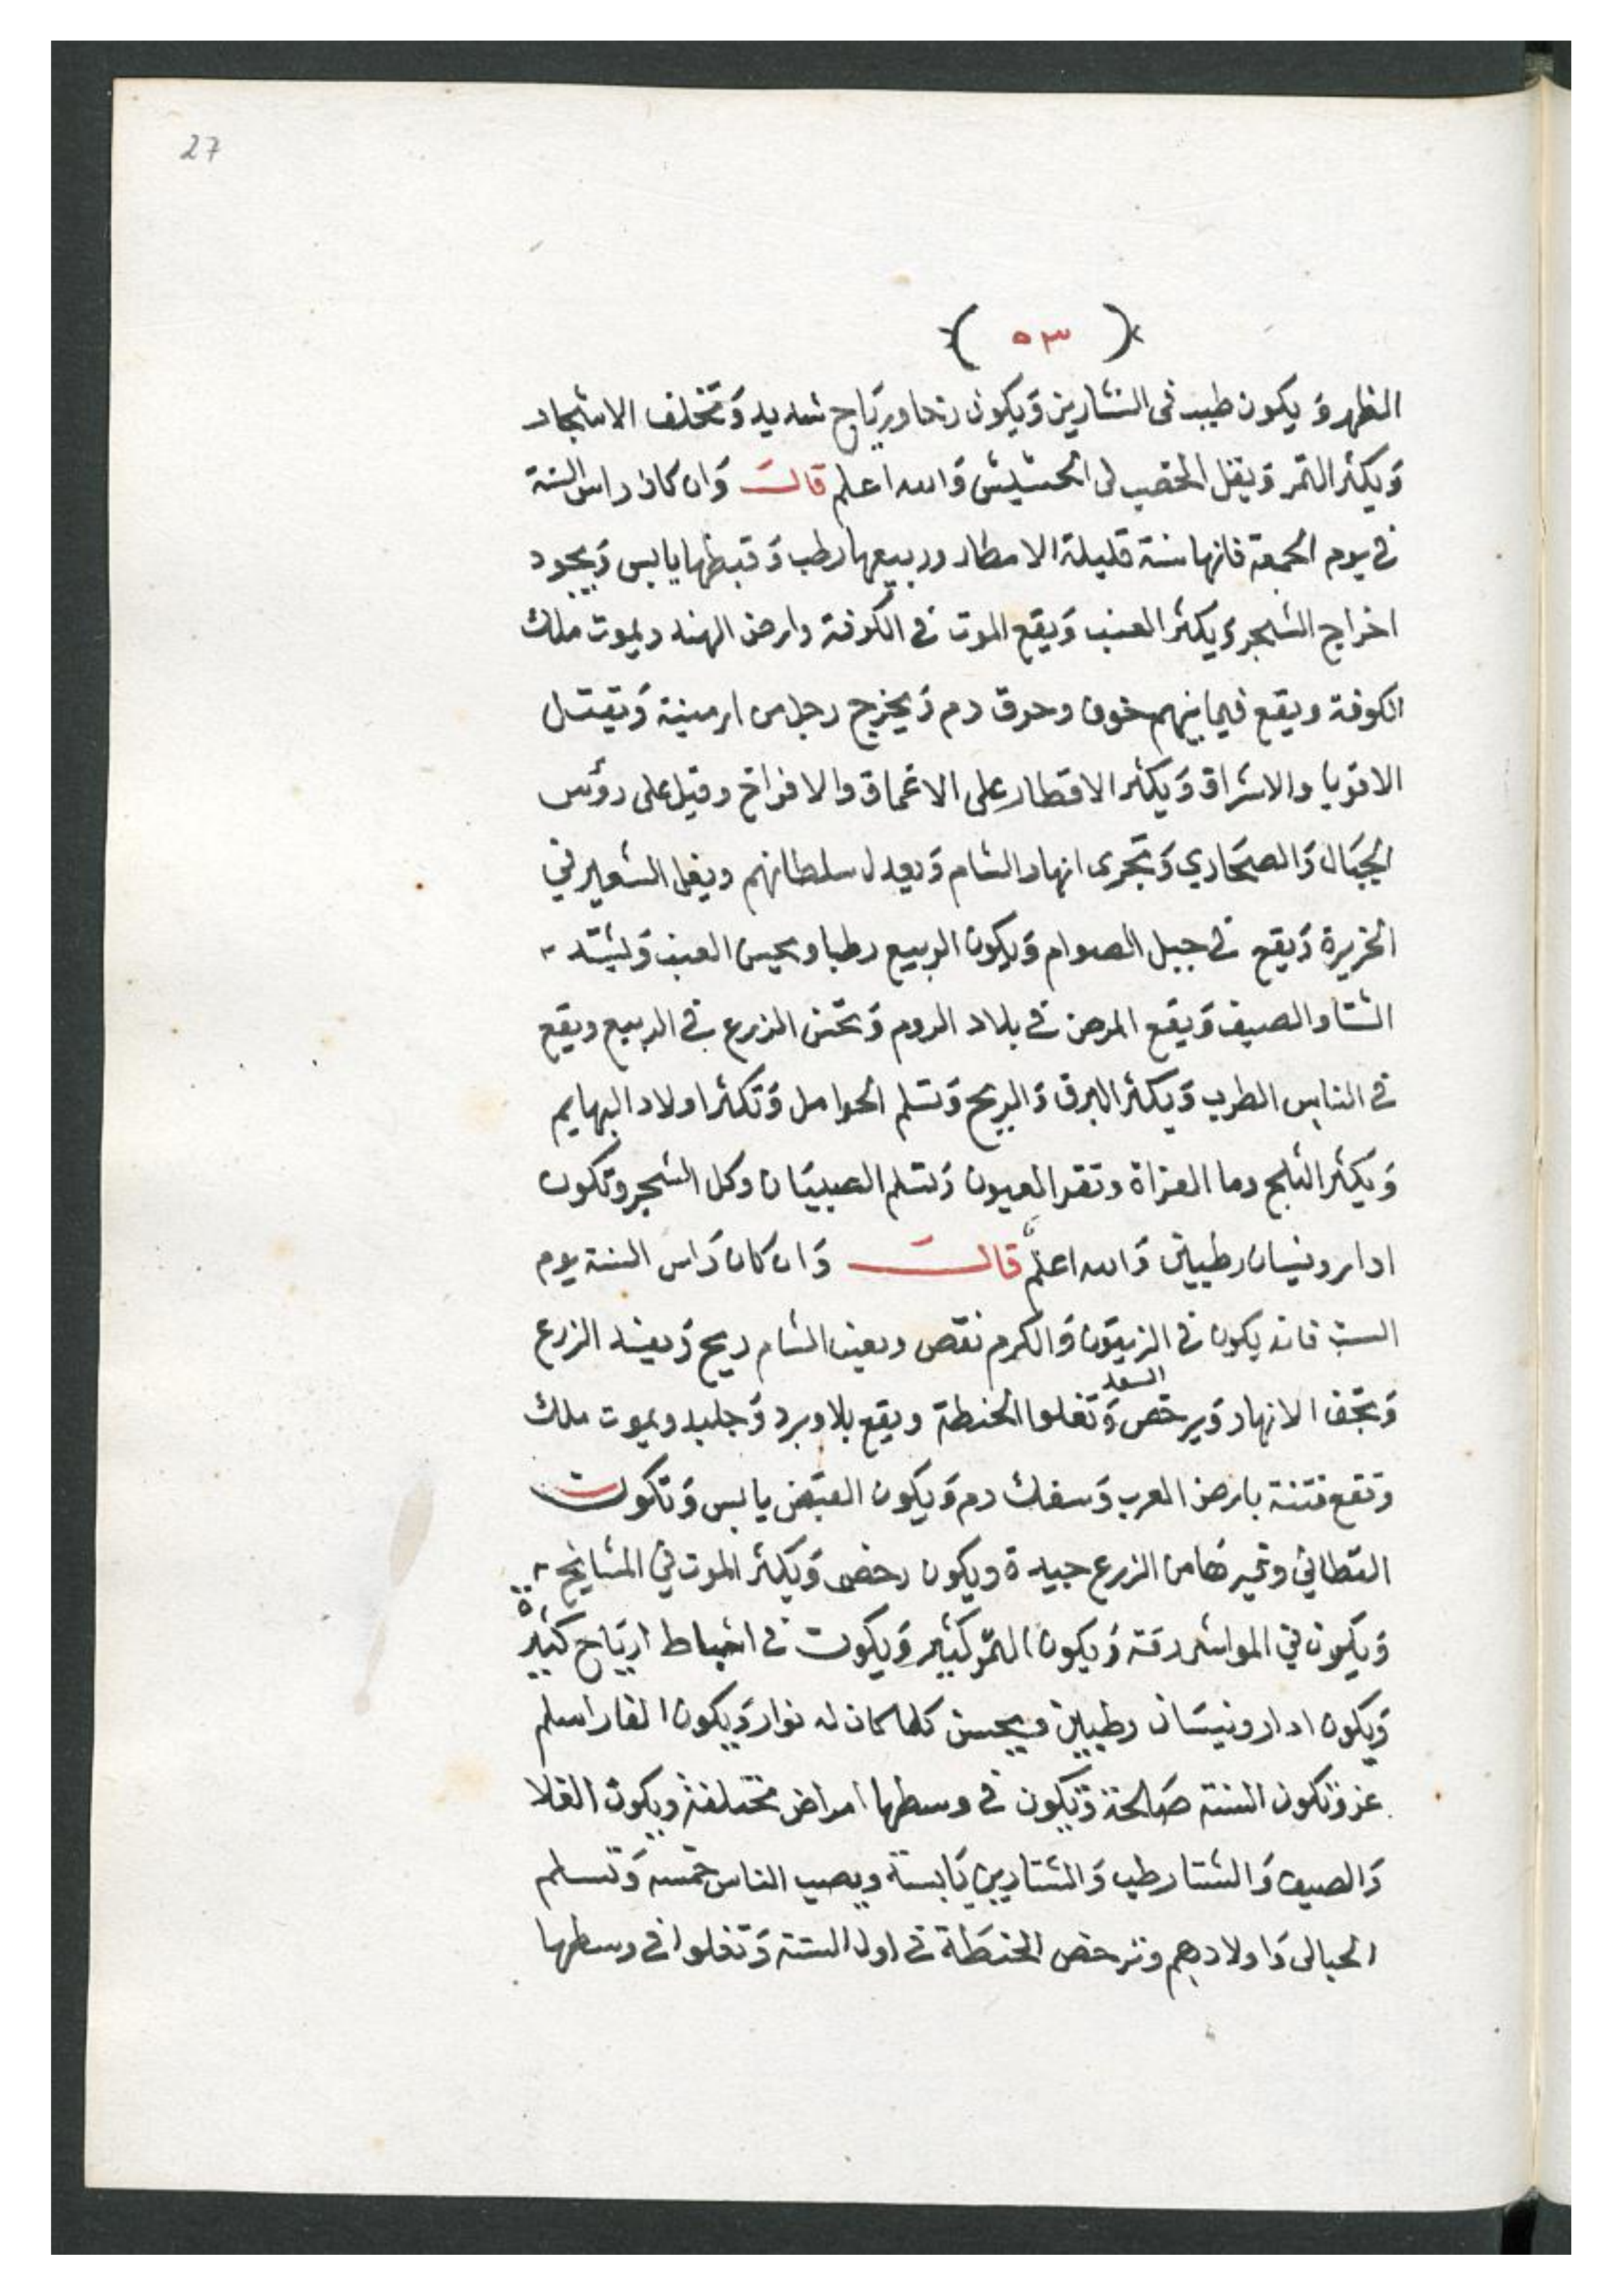 27
( ٥٣ )
الظهر وَيكون طيب فى التشارين وَيكون رخا ورياح شديد وَتخلف الاشجار
وَيكثر التمر وَيقل الخصب فى الحشيش وَالله اعلم قال وَان كان راس السنة
فى يوم الجمعة فانها سنة قليلة الامطار وربيعها رطب وَقيظها يابس وَيجود
اخراج الشجر وَيكثر العنب وَيقع الموت فى الكوفة وارض الهند ويموت ملك
الكوفة ويقع فيما بينهم خوف وحرق دم وَيخرج رجل من ارمينية وَيقتل
الاقويا والاشراق وَيكثر الاقطار على الاعماق والافراخ وقيل على رؤس
الجبَال وَالصحَاري وَتجرى انهار الشام وَيعدل سلطانهم ويغل الشعير في
الخزيرة وَيقع فى جبل الصوام وَيكون الربيع رطبا ويحسن العنب وَليشتد
الشتا والصيف وَيقع المرض فى بلاد الروم وَتحسن الزرع فى الربيع ويقع
فى الناس الطرب وَيكثر البرق وَالريح وَتسلم الحوامل وَتكثر اولاد البهايم
وَيكثر الثلج وما الفراة وتقر العيون وَتسلم الصبيَان وكل الشجر وتكون
ادار ونيسان رطبين وَالله اعلم قال وَان كان رَاس السنة يوم
السبت فانه يكون فى الزيتون وَالكرم نقص وبعض الشام ريح وَيفسد الزرع
وَتجف الانهار وَيرخص السعد وَتغلوا الحنطة ويقع بلا وبرد وَجليد ويموت ملك
وتقع فتنة بارض العرب وَسفك دم وَيكون القبَض يابس وَتكون
القطاني وغيرهَا من الزرع جيدة ويكون رخص وَيكثر الموت في المشايخ
وَيكون في المواشى رقة وَيكون التمر كثير وَيكون فى اشباط ارياح كثيرة
وَيكون ادار ونيسَان رطبين ويحسن كلما كان له نوار وَيكون الفار اسلم
عز وَتكون السنة صَالحة وَيكون فى وسطها امراض مختلفة ويكون الغلا
وَالصيف وَالشتا رطب وَالتشارين يَابسة ويصيب الناس خمسه وَتسلم
الحبالى وَاولادهم وترخص الحنطَة فى اول السنة وَتغلوا فى وسطها